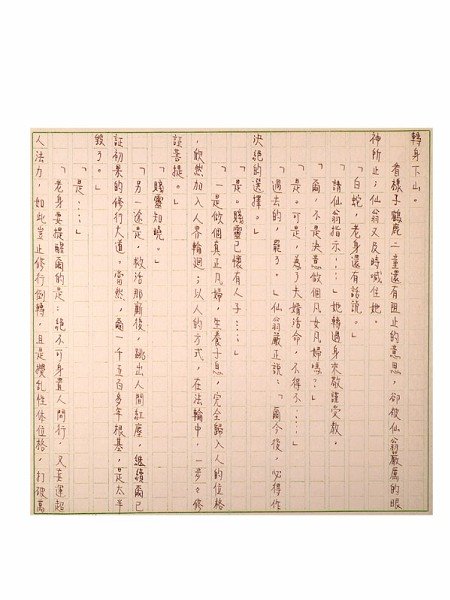 轉身下山。
看樣子鶴鹿二童還有阻止的意思，卻被仙翁嚴厲的眼
神所止；仙翁又及時喊住她。
「白蛇，老身還有話說。」
「請仙翁指示⋯⋯」她轉過身來敬謹受教。
「爾，不是決意做個凡女凡婦嗎？」
「是。可是，為了夫婿活命，不得不⋯⋯」
「過去的，罷了。」仙翁嚴正說：「爾今後，必得作
決絕的選擇。」
「是。賤靈已懷有人子⋯⋯」
「一是做個真正凡婦，生養子息，完全歸入人的位格
，欣然加入人界輪迴；以人的方式，在法輪中，一步々修
證菩提。」
「賤靈知曉。」
「另一途是，救活那廝後，跳出人間紅塵，繼續爾已
証初果的修行大道。當然，爾一千五百多年根基，是太半
毀了。」
「是⋯⋯」
「老身要提醒爾的是：絕不可身置人間行，又妄運超
人法力，如此豈止修行倒轉，且是攪乱性体位格，打破萬